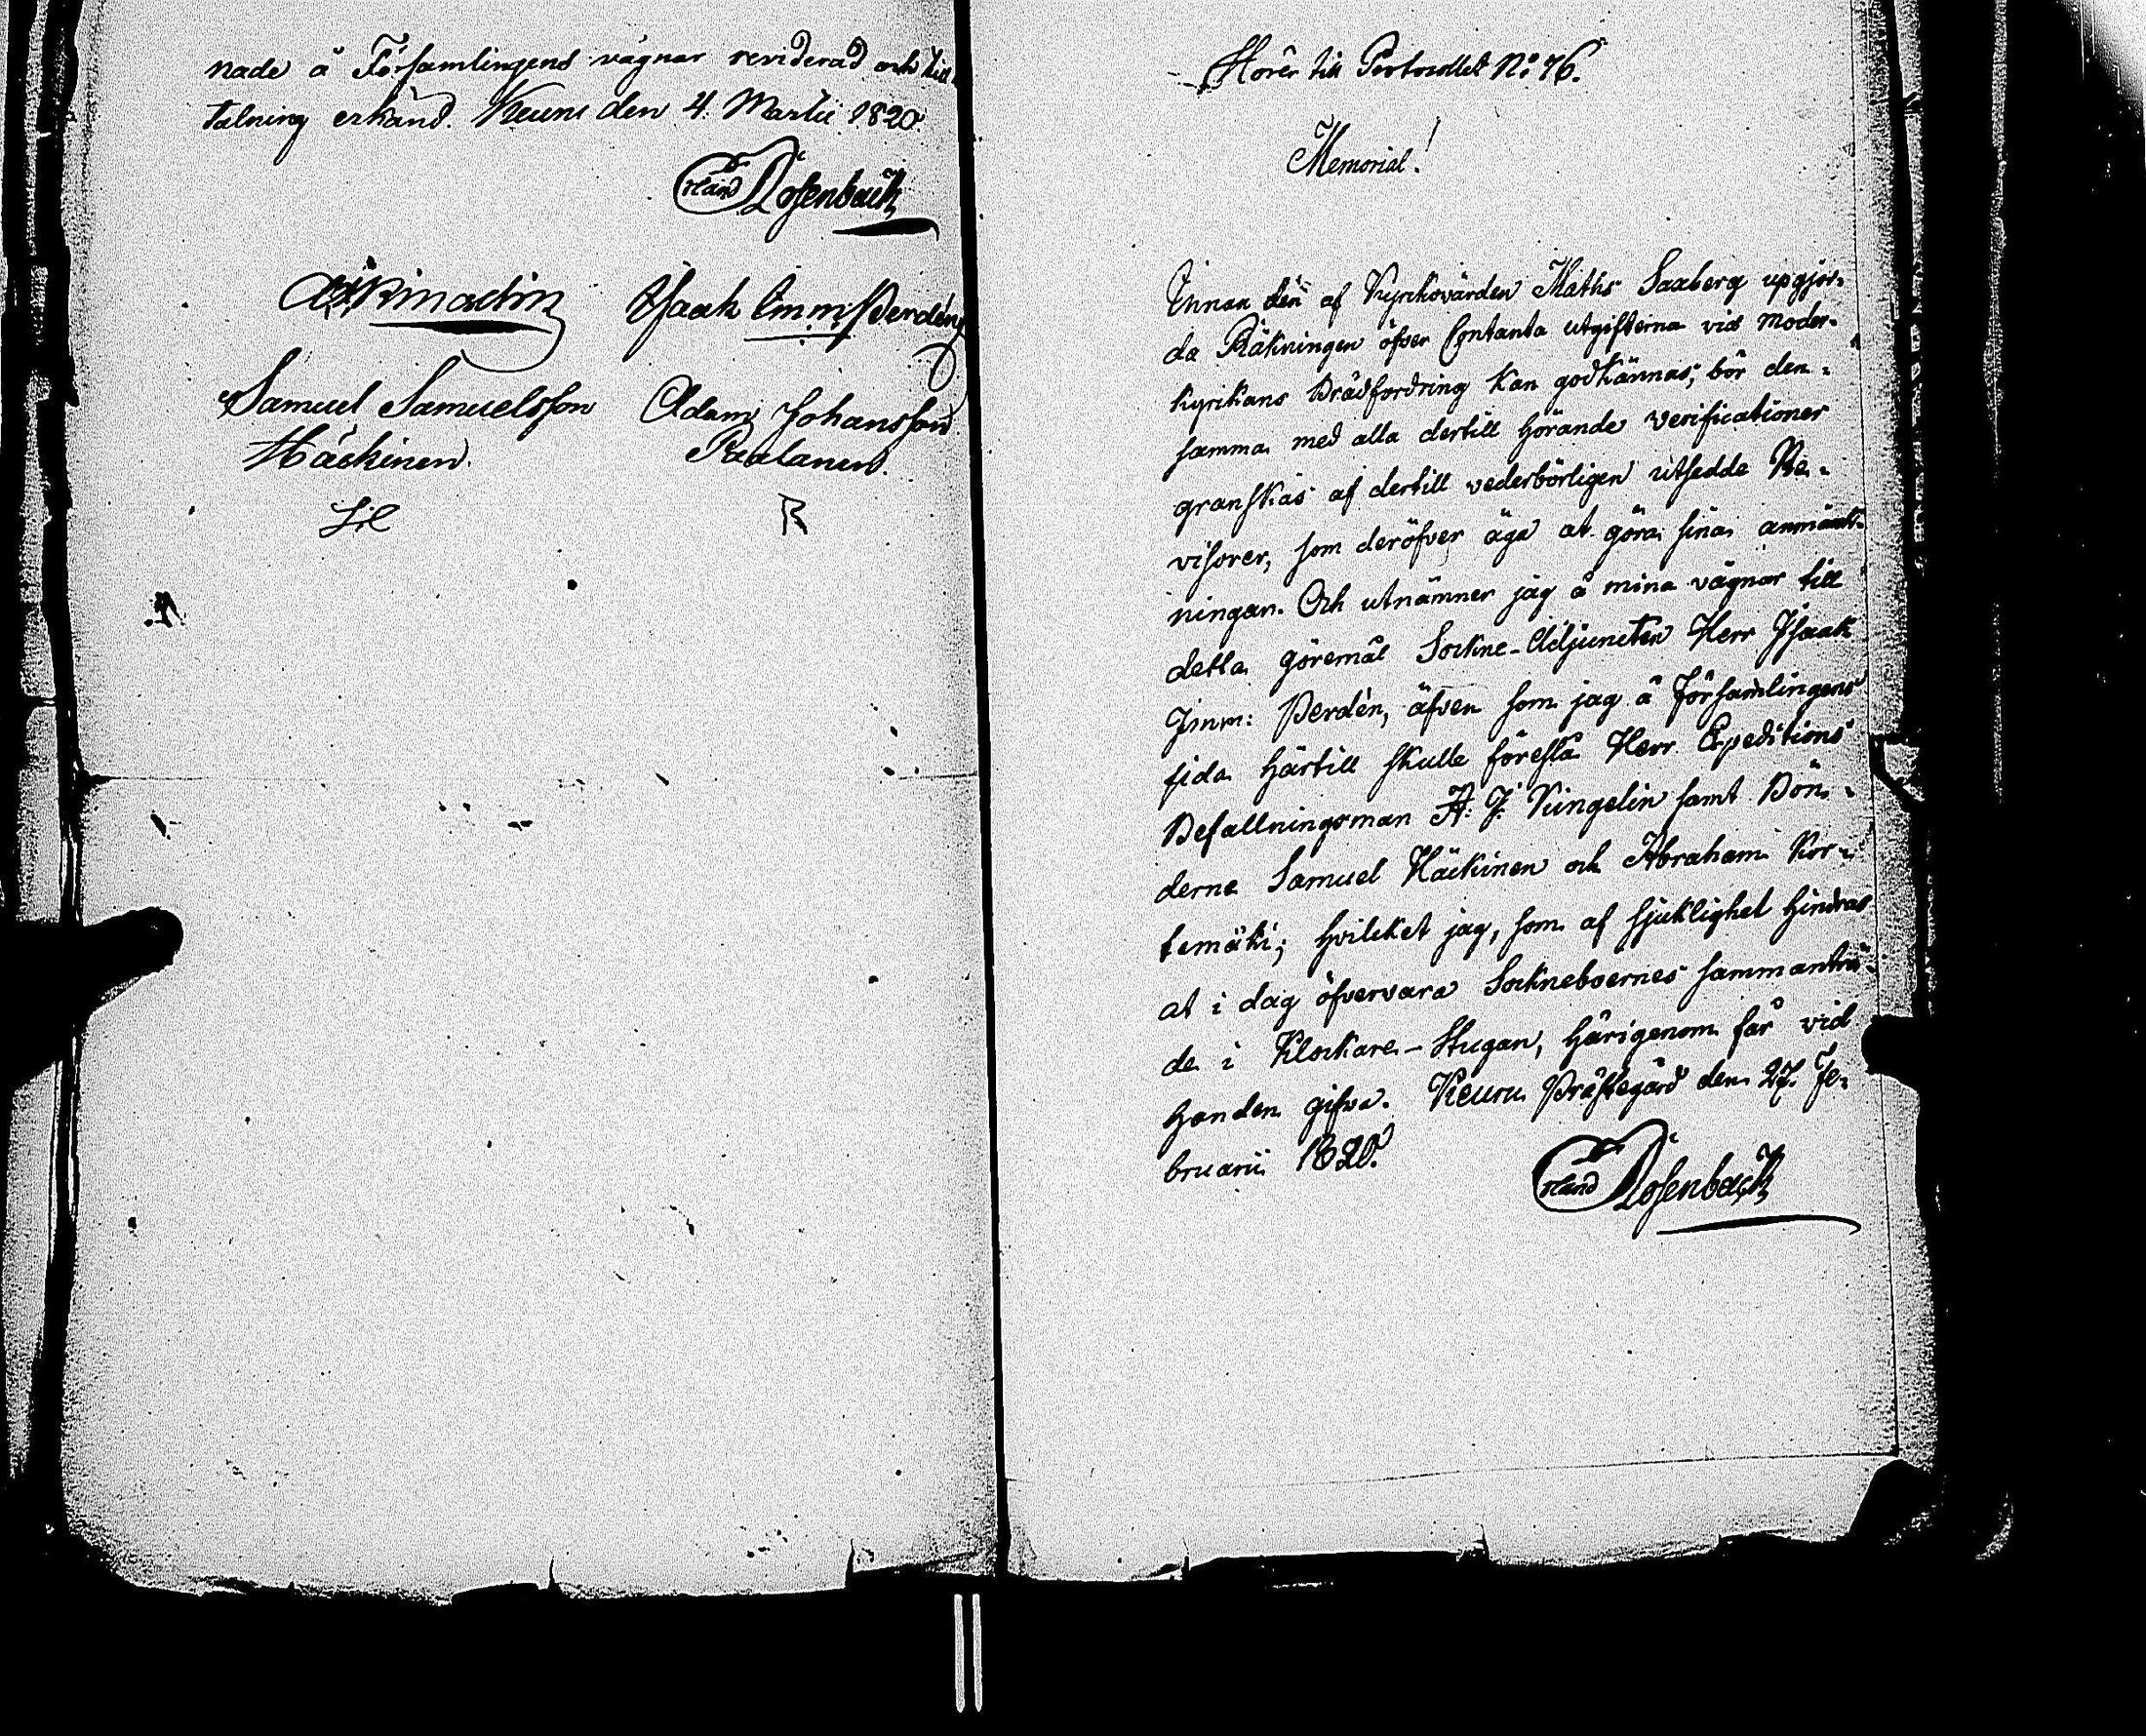 nade å Församlingens vägnar reviderad och till
talning erkänd. Keuru den 4. Martii 1820.
Erland Rosenback
Isaak Imm: Perdén
Samuel Samuelsson Adam Johansson
Häckinen. Paalanen.
Hörer till Protocollet No. 76.
Memorial!
Innan den af Kyrkovärden Maths Saxberg upgjor-
da Räkningen öfver Contanta utgifterna vid Moder-
kyrkans Brädfordring kan godkännas, bör den-
samma med alla dertill hörande verificationer
granskas af dertill vederbörligen utsedde Re-
visorer, som deröfver äga at göra sina anmärk-
ningar. Och utnämner jag å mina vägnar till
detta göremål Sockne-Adjuncten Herr Isaak
Imm: Perdén, äfven som jag å Församlingens
sida härtill skulle föreslå Herr Expeditions
Befallningsman A. J. Kingelin samt Bön-
derne Samuel Häckinen och Abraham Kor-
temäki; hvilcket jag, som af sjuklighet hindras
at i dag öfvervara Sockneboernes sammanträ-
de i Klockare-Stugan, härigenom får vid
handen gifva. Keuru Prästegård den 27. Fe-
bruarii 1820.
Erland Rosenback